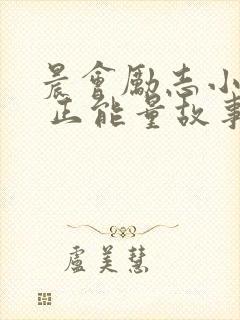 晨會勵志小
正能量故事
盧美慧